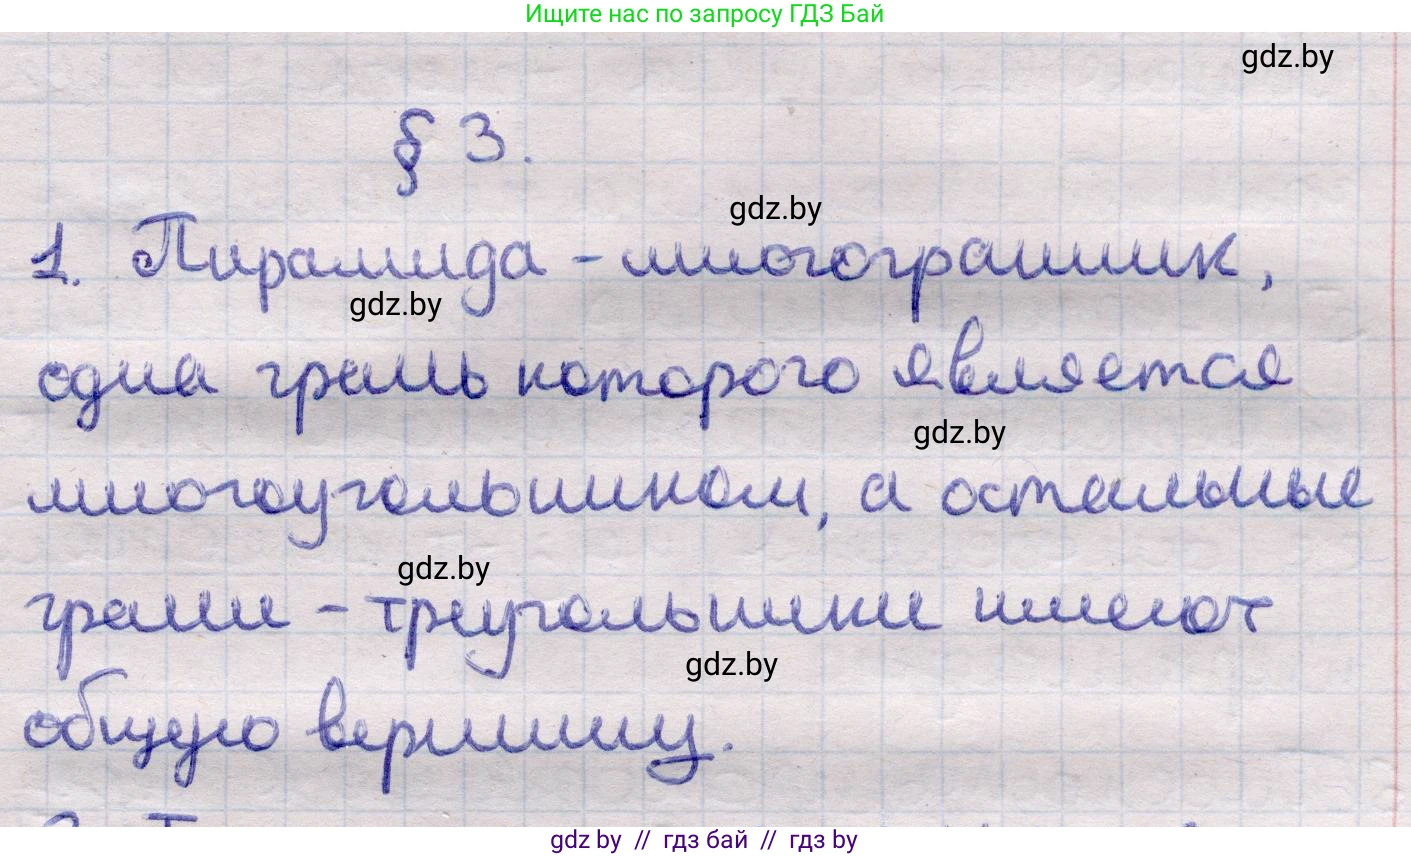 Ищите нас по запросу ГДЗ Бай
gdz.by
§ 3.
gdz.by
1. Пирамида - многогранник,
gdz.by
одна грань которого является
gdz.by
многоугольником, а остальные
gdz.by
грани - треугольники имеют
gdz.by
общую вершину.
gdz.by // гдз бай // гдз by